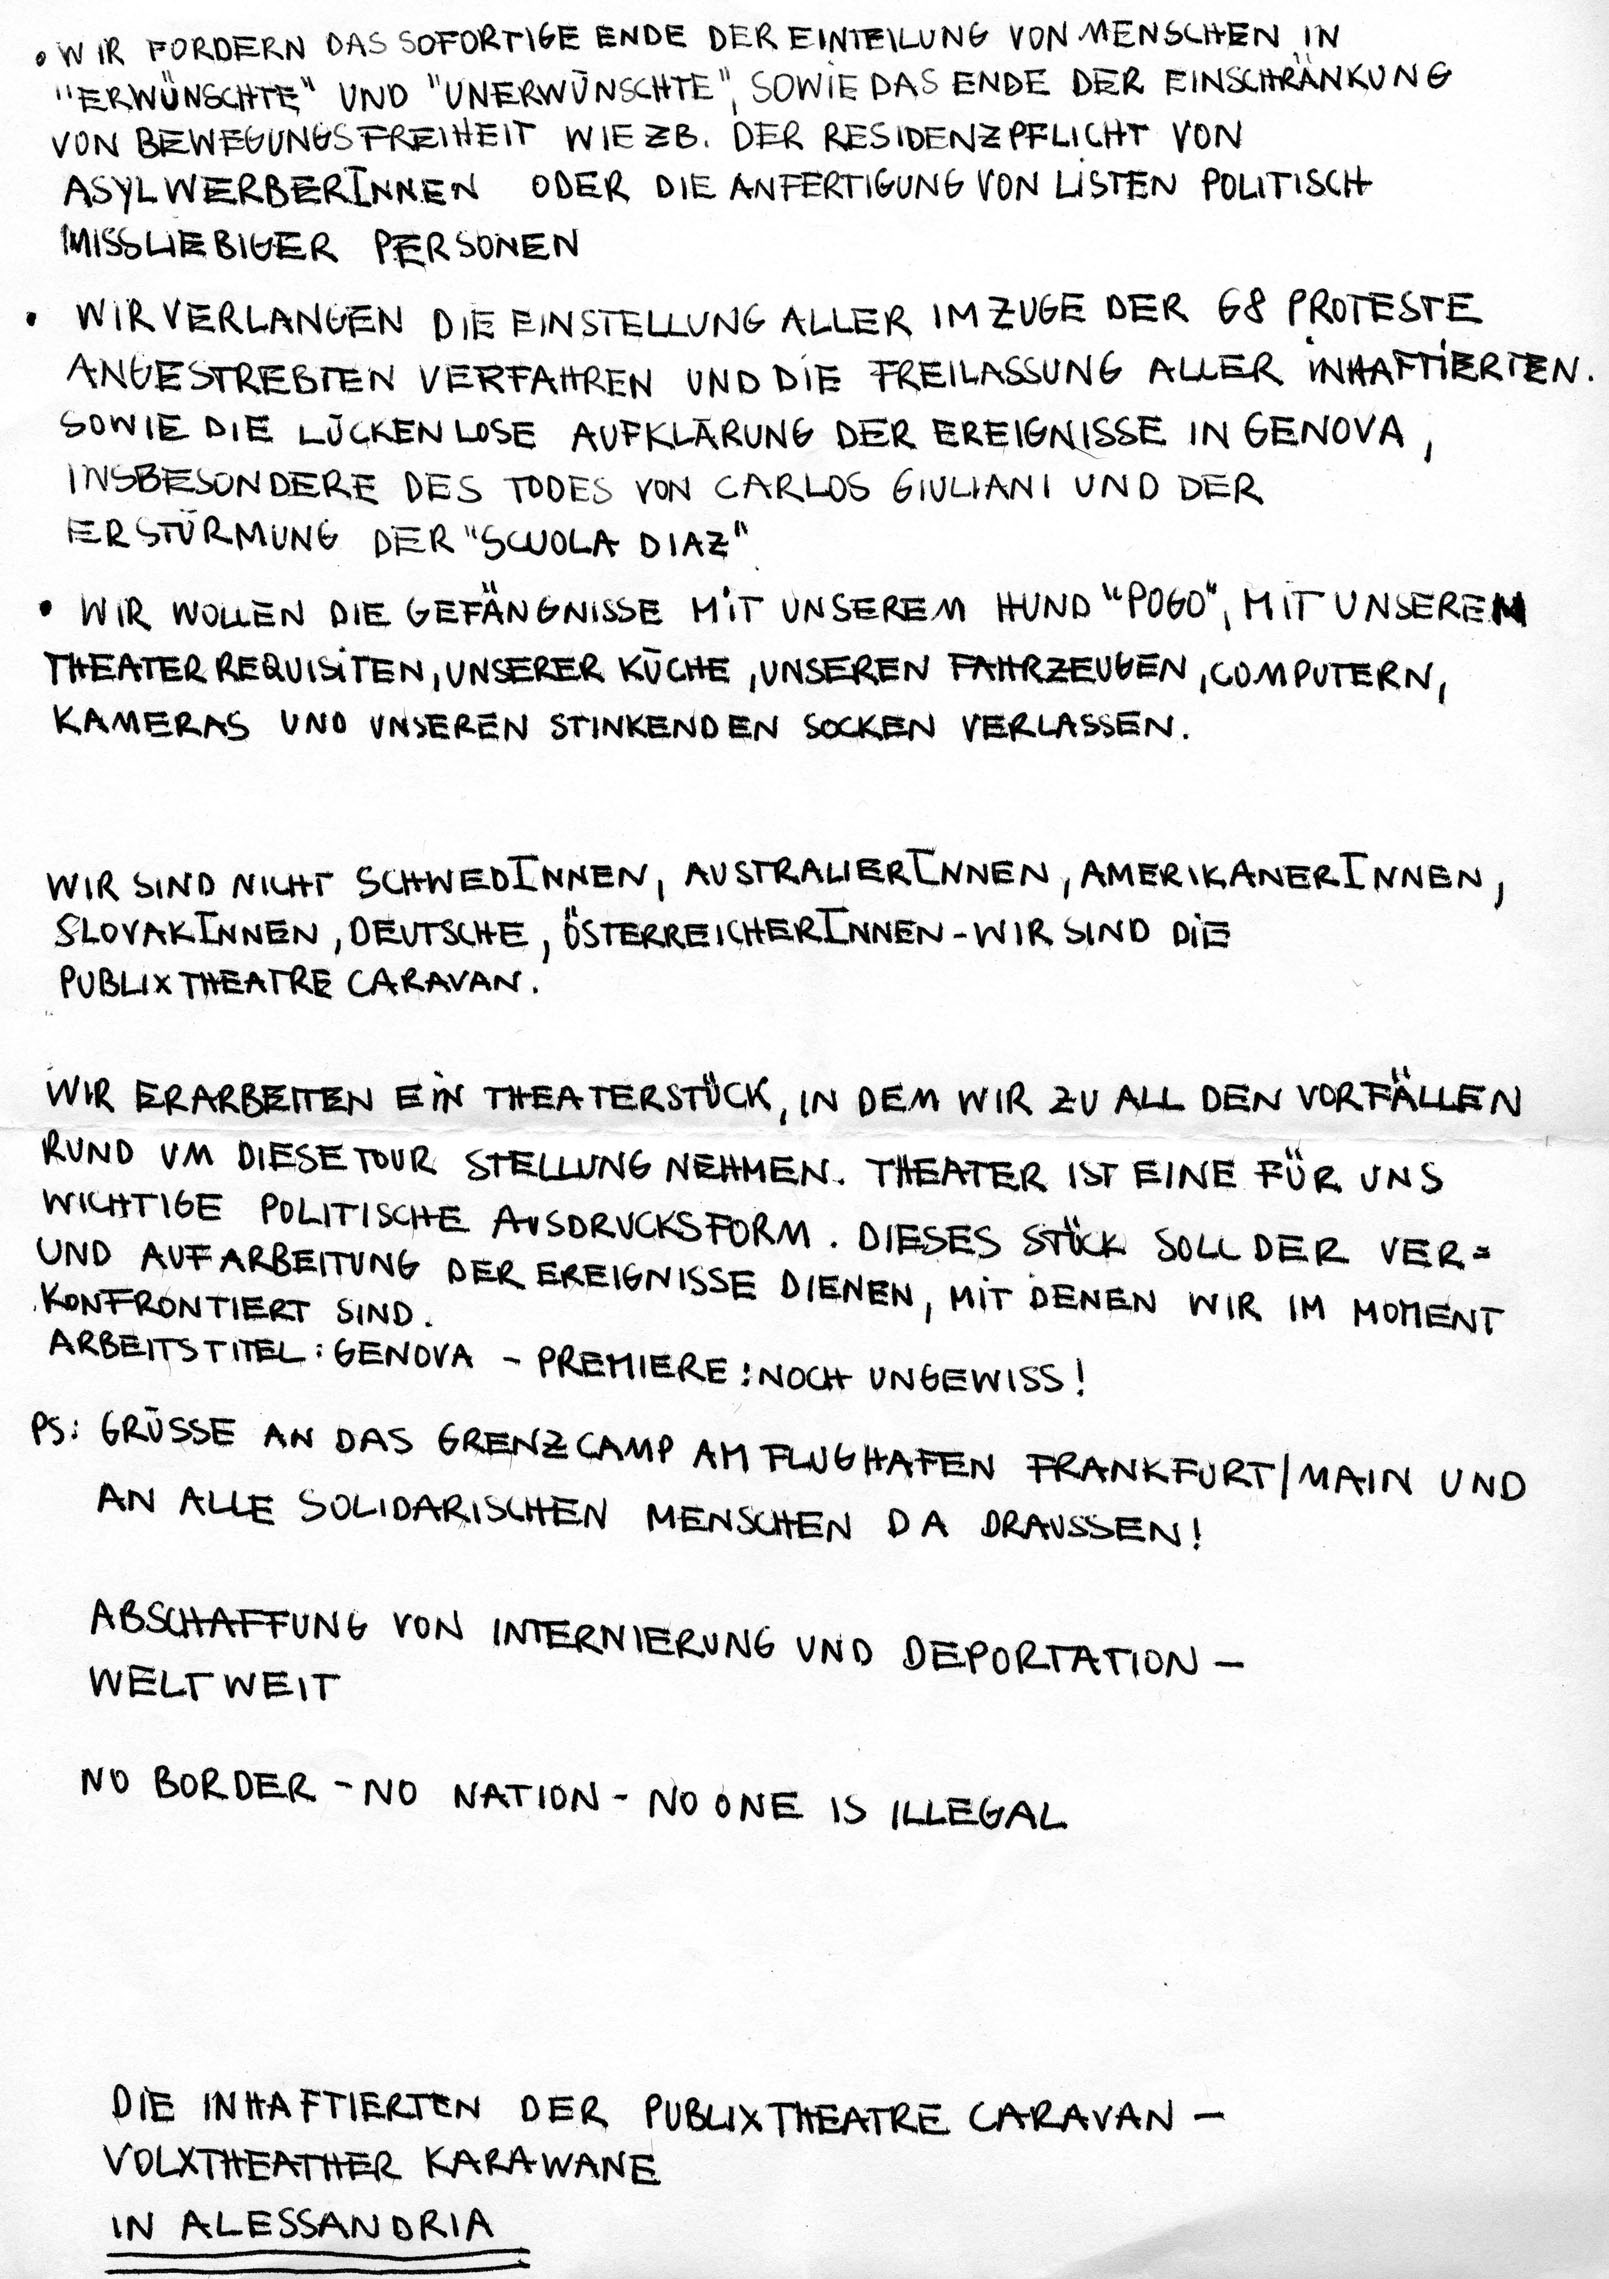 • WIR FORDERN DAS SOFORTIGE ENDE DER EINTEILUNG VON MENSCHEN IN
"ERWÜNSCHTE" UND "UNERWÜNSCHTE", SOWIE DAS ENDE DER EINSCHRÄNKUNG
VON BEWEGUNGSFREIHEIT WIE ZB. DER RESIDENZPFLICHT VON
ASYLWERBERINNEN ODER DIE ANFERTIGUNG VON LISTEN POLITISCH
MISSLIEBIGER PERSONEN
• WIR VERLANGEN DIE EINSTELLUNG ALLER IM ZUGE DER G8 PROTESTE
ANGESTREBTEN VERFAHREN UND DIE FREILASSUNG ALLER INHAFTIERTEN.
SOWIE DIE LÜCKENLOSE AUFKLÄRUNG DER EREIGNISSE IN GENOVA,
INSBESONDERE DES TODES VON CARLOS GIULIANI UND DER
ERSTÜRMUNG DER "SCUOLA DIAZ"
• WIR WOLLEN DIE GEFÄNGNISSE MIT UNSEREM HUND "POGO", MIT UNSEREN
THEATERREQUISITEN, UNSERER KÜCHE, UNSEREN FAHRZEUGEN, COMPUTERN,
KAMERAS UND UNSEREN STINKENDEN SOCKEN VERLASSEN.
WIR SIND NICHT SCHWEDINNEN, AUSTRALIERINNEN, AMERIKANERINNEN,
SLOVAKINNEN, DEUTSCHE, ÖSTERREICHERINNEN - WIR SIND DIE
PUBLIXTHEATRE CARAVAN.
WIR ERARBEITEN EIN THEATERSTÜCK, IN DEM WIR ZU ALL DEN VORFÄLLEN
RUND UM DIESE TOUR STELLUNG NEHMEN. THEATER IST EINE FÜR UNS
WICHTIGE POLITISCHE AUSDRUCKSFORM. DIESES STÜCK SOLL DER VER=
UND AUFARBEITUNG DER EREIGNISSE DIENEN, MIT DENEN WIR IM MOMENT
KONFRONTIERT SIND.
ARBEITSTITEL: GENOVA - PREMIERE: NOCH UNGEWISS!
PS: GRÜSSE AN DAS GRENZCAMP AM FLUGHAFEN FRANKFURT/MAIN UND
AN ALLE SOLIDARISCHEN MENSCHEN DA DRAUSSEN!
ABSCHAFFUNG VON INTERNIERUNG UND DEPORTATION -
WELTWEIT
NO BORDER - NO NATION - NO ONE IS ILLEGAL
DIE INHAFTIERTEN DER PUBLIXTHEATRE CARAVAN -
VOLXTHEATHER KARAWANE
IN ALESSANDRIA